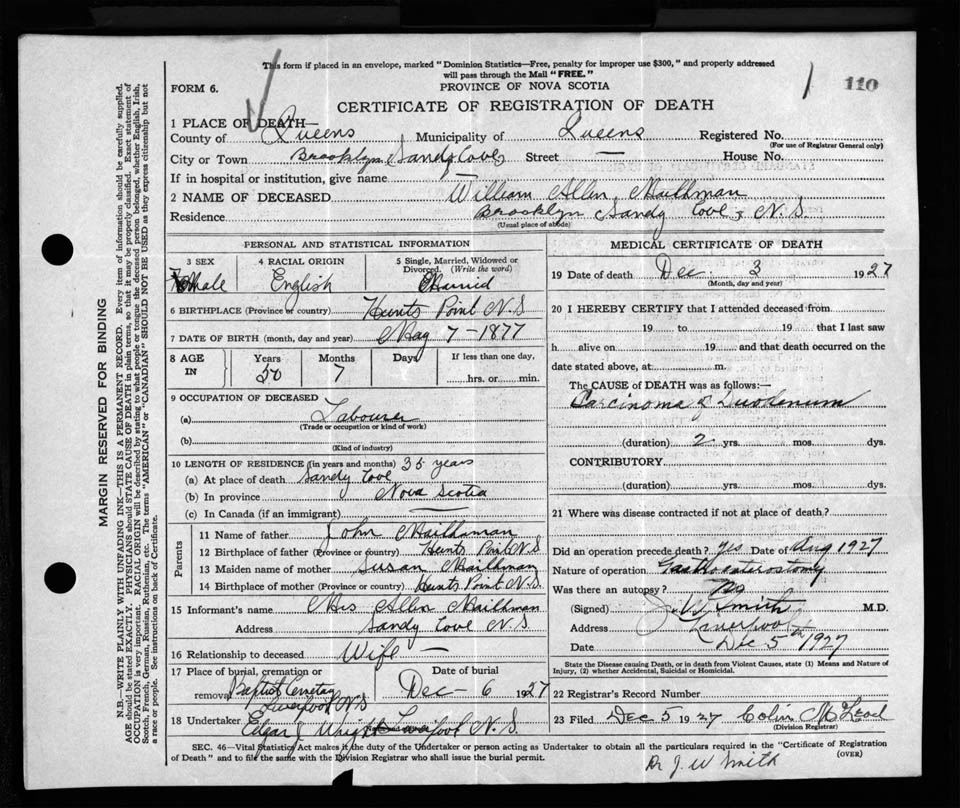 This form if placed in an envelope, marked "Dominion Statistics—Free, penalty for improper use $300," and properly addressed
will pass through the Mail "FREE."
1 110
FORM 6.
PROVINCE OF NOVA SCOTIA
CERTIFICATE OF REGISTRATION OF DEATH
1 PLACE OF DEATH—
County of Queens Municipality of Queens Registered No.
(For use of Registrar General only)
City or Town Brooklyn Sandy Cove Street — House No.
If in hospital or institution, give name
2 NAME OF DECEASED William Allin Mailhman
Residence Brooklyn Sandy Cove, N.S.
(Usual place of abode)
PERSONAL AND STATISTICAL INFORMATION
3 SEX 4 RACIAL ORIGIN 5 Single, Married, Widowed or
Divorced. (Write the word)
Male English Marrid
6 BIRTHPLACE (Province or country) Hunts Point N.S
7 DATE OF BIRTH (month, day and year) May 7-1877
8 AGE IN Years Months Days If less than one day,
50 7 hrs. or min.
9 OCCUPATION OF DECEASED
(a) Labourer
(Trade or occupation or kind of work)
(b)
(Kind of industry)
10 LENGTH OF RESIDENCE (in years and months) 35 years
(a) At place of death Sandy Cove
(b) In province Nova Scotia
(c) In Canada (if an immigrant) —
Parents
11 Name of father John Mailhman
12 Birthplace of father (Province or country) Hunts Point N.S
13 Maiden name of mother Susan Mailhman
14 Birthplace of mother (Province or country) Hunts Point N.S.
15 Informant's name Mrs Allin Mailhman
Address Sandy Cove N.S.
16 Relationship to deceased Wife —
17 Place of burial, cremation or removal Baptist Cemetay Liverpool N.S Date of burial Dec - 6 1927
18 Undertaker Edgar J Wright Liverpool N.S.
MEDICAL CERTIFICATE OF DEATH
19 Date of death Dec. 3 1927
(Month, day and year)
20 I HEREBY CERTIFY that I attended deceased from
19 to 19 that I last saw
h alive on 19 and that death occurred on the
date stated above, at m.
The CAUSE of DEATH was as follows:—
Carcinoma of Duodenum
(duration) 2 yrs. mos. dys.
CONTRIBUTORY
(duration) yrs. mos. dys.
21 Where was disease contracted if not at place of death?
Did an operation precede death? yes Date of Aug 1927
Nature of operation Gastroenterostomy
Was there an autopsy? No
(Signed) J. W. Smith M.D.
Address Liverpool
Date Dec 5th 1927
State the Disease causing Death, or in death from Violent Causes, state (1) Means and Nature of
Injury, (2) whether Accidental, Suicidal or Homicidal.
22 Registrar's Record Number
23 Filed Dec 5 1927 Colin McLeod
(Division Registrar)
SEC. 46—Vital Statistics Act makes it the duty of the Undertaker or person acting as Undertaker to obtain all the particulars required in the "Certificate of Registration
of Death" and to file the same with the Division Registrar who shall issue the burial permit.
(OVER)
Dr J. W Smith
MARGIN RESERVED FOR BINDING
N.B.—WRITE PLAINLY WITH UNFADING INK—THIS IS A PERMANENT RECORD. Every item of information should be carefully supplied.
AGE should be stated EXACTLY. PHYSICIANS should STATE CAUSE OF DEATH in plain terms, so that it may be properly classified. Exact statement of
OCCUPATION is very important. RACIAL ORIGIN will be described by stating to what people or tongue the deceased person belonged, whether English, Irish,
Scotch, French, German, Russian, Ruthenian, etc. The terms "AMERICAN" or "CANADIAN" SHOULD NOT BE USED as they express citizenship but not
a race or people. See instructions on back of Certificate.